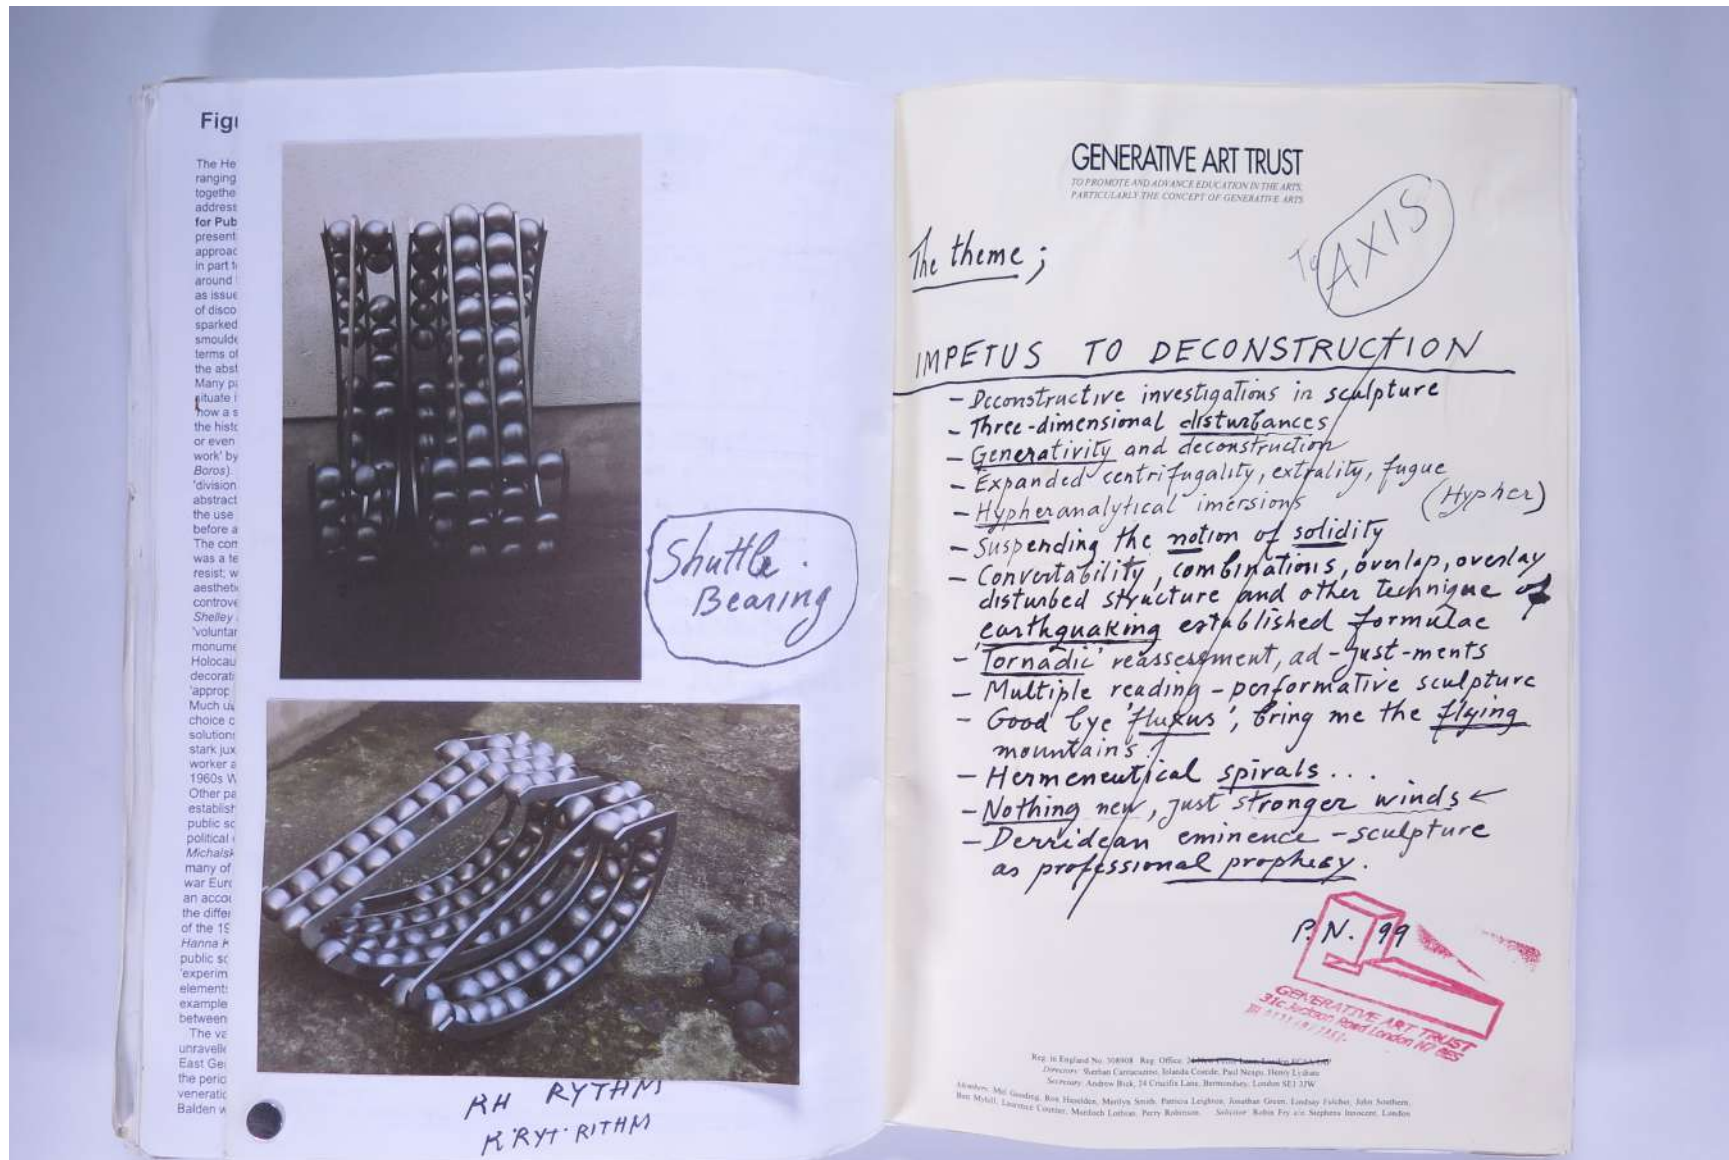 Figu
The He
ranging
togethe
address
for Pub
present
approac
in part t
around
as issue
of disco
sparked
smoulde
terms of
the abst
Many pa
situate i
how a s
the histo
or even
work' by
Boros).
'division
abstract
the use
before a
The com
was a te
resist; w
aestheti
controve
Shelley
'voluntar
monume
Holocau
decorati
'approp
Much u
choice o
solutions
stark jux
worker a
1960s W
Other pa
establish
public sc
political
Michalsk
many of
war Euro
an accou
the differ
of the 19
Hanna K
public sc
'experim
elements
example
between
The va
unravelle
East Ger
the perio
veneratio
Balden w
Shuttle.
Bearing
RH RYTHM
K'RYT.RITHM
GENERATIVE ART TRUST
TO PROMOTE AND ADVANCE EDUCATION IN THE ARTS,
PARTICULARLY THE CONCEPT OF GENERATIVE ARTS
To AXIS
The theme;
IMPETUS TO DECONSTRUCTION
- Deconstructive investigations in sculpture
- Three-dimensional disturbances
- Generativity and deconstruction
- Expanded centrifugality, extrality, fugue
- Hypheranalytical imersions (Hypher)
- Suspending the notion of solidity
- Convertability, combinations, overlap, overlay
disturbed structure and other technique of
'earthquaking established formulae
- 'Tornadic' reassessment, ad-just-ments
- Multiple reading - performative sculpture
- Good bye 'fluxus', bring me the flying
mountains!
- Hermeneutical spirals...
- Nothing new, just stronger winds ←
- Derridean eminence - sculpture
as professional prophesy.
P.N. 99
GENERATIVE ART TRUST
31c Jackson Road London N7 6ES
Reg. in England No. 508908 Reg. Office
Directors: Sherban Cantacuzino, Iolanda Costide, Paul Neagu, Henry Lydiate
Secretary: Andrew Bick, 24 Crucifix Lane, Bermondsey, London SE1 3JW
Members: Mel Gooding, Ron Haselden, Marilyn Smith, Patricia Leighton, Jonathan Green, Lindsay Fulcher, John Southern,
Ben Mybill, Laurence Coutier, Murdoch Lothian, Perry Robinson. Solicitor: Robin Fry c/o Stephens Innocent, London